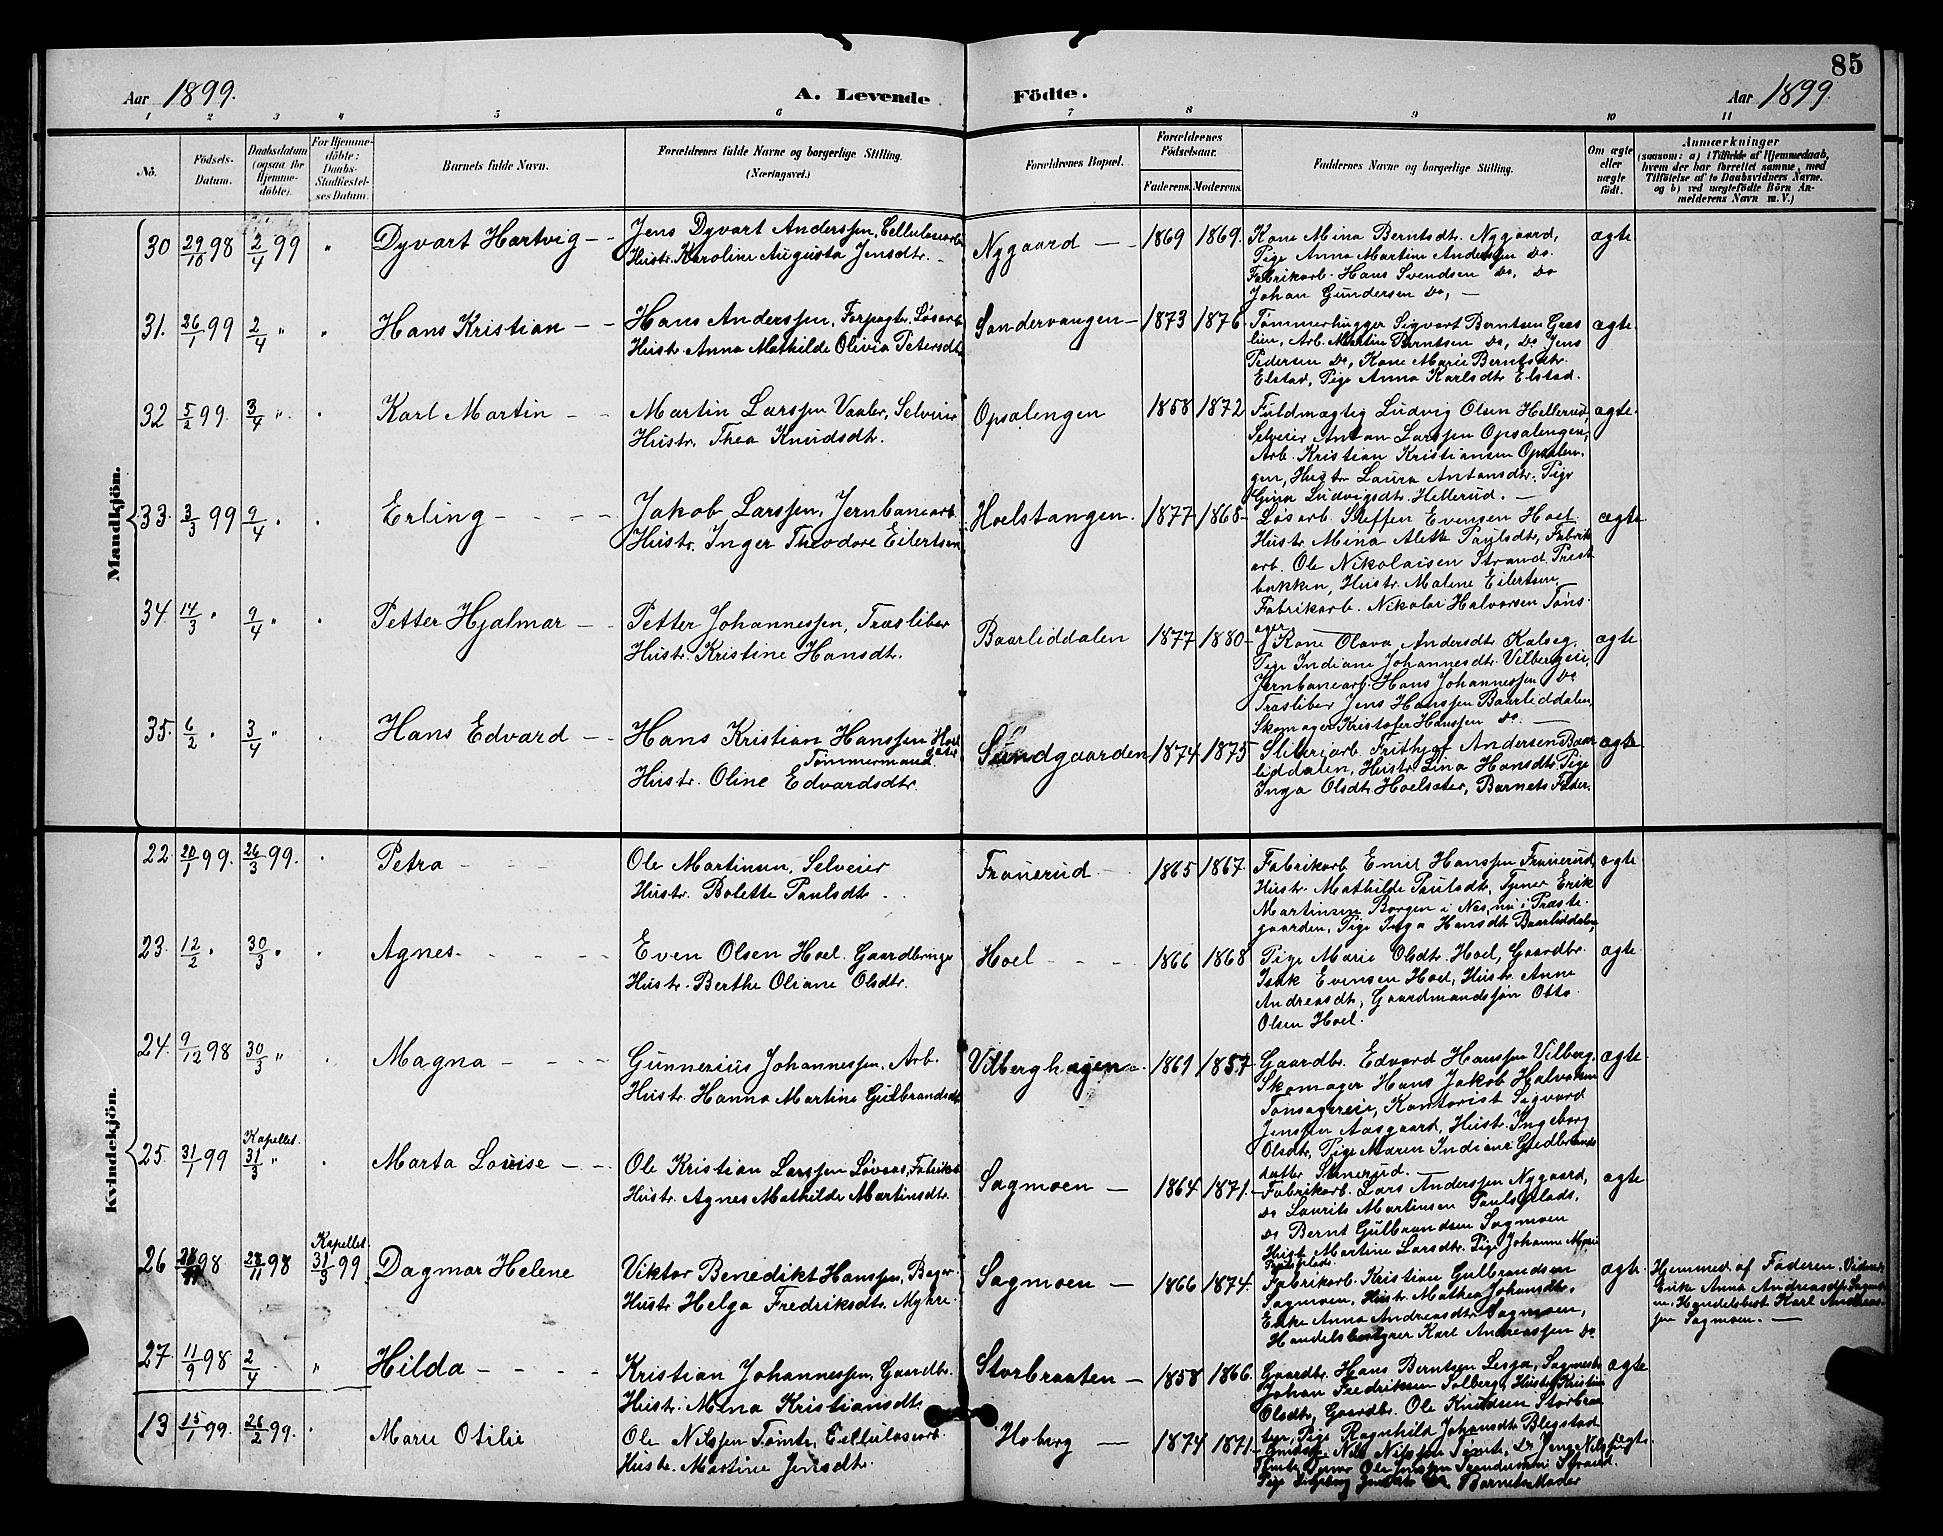 85
Aar 1899. A. Levende Födte. Aar 1899
1 2 3 4 5 6 7 8 9 10 11
No. Födsels-Datum. Daabsdatum (ogsaa for Hjemmedöbte). For Hjemmedöbte: Daabs-Stadfæstelses Datum. Barnets fulde Navn. Forældrenes fulde Navne og borgerlige Stilling. (Næringsvei.) Forældrenes Bopæl. Forældrenes Födselsaar. Faderens. Moderens. Faddernes Navne og borgerlige Stilling. Om ægte eller uægte født. Anmærkninger
(saasom: a) i Tilfælde af Hjemmedaab, hvem der har forrettet samme, med Tilföielse af to Daabsvidners Navne. og b) ved uægtefödte Börn Anmelderens Navn m. V.)
Mandkjön.
30 29/10 98 2/4 99 " Dyvart Hartvig - - Jens Dyvart Anderssen, Cellulosearb.
Hustr. Karoline Augusta Jensdtr. -
Nygaard - - 1869 1869.
Kone Mina Berntsdtr. Nygaard,
Pige Anna Martine Anderssen Do.
Fabrikarb. Hans Svendsen Do, Do
Johan Gundersen Do, -
ægte
31. 26/1 99 2/4 " " Hans Kristian - - Hans Anderssen, Forpagter, Løsarb
Hustr. Anna Mathilde Olivia Petersdtr.
Sandervangen - 1873 1876
Tømmerhugger Sigvart Berntsen Græs
lien, Arb. Martin Berntsen Do, Do Jens
Pedersen Do, Kone Marie Berntsdtr.
Elstad, Pige Anna Karlsdtr Elstad.
ægte
32 5/2 99. 3/4 " . Karl Martin - - Martin Larssen Vaaler, Selveier
Hustr. Thea Knudsdtr.
Opsalengen 1858 1872
Fuldmægtig Ludvig Olsen Hellerud,
Selveier Anton Larssen Opsalengen,
Arb. Kristian Kristiansen Opsalen-
gen, Hustr Laura Antonsdtr. Pige
Gina Ludvigsdtr. Hellerud. -
ægte.
33. 3/3 99 9/4 " . Erling - - - - Jakob Larssen, Jernbanearb.
Hustr. Inger Theodore Eilertsen
Hoelstangen. 1877 1868
Løsarb. Steffen Evensen Hoel
Hustr Mina Alette Paulsdtr, Fabrik
arb. Ole Nikolaisen Strand Prest
bakken, Hustr. Malene Eilertsen
Fabrikarb. Nikolai Halvorsen Tøns-
ager
ægte
34. 14/3 " 9/4 " . Petter Hjalmar - - Petter Johannessen, Træsliber
Hustr. Kristine Hansdtr.
Baarliddalen 1877 1880
Kone Olava Andersdtr Kalseg,
Pige Indiane Johannesdtr. Vilbergeie,
Jernbanearb. Hans Johannessen Do
Træsliber Jens Hanssen Baarliddalen,
Skomager Kristofer Hanssen Do. -
ægte
35. 6/2 " 3/4 " . Hans Edvard - - Hans Kristian Hanssen Hoel
sæter
Tømmermand.
Hustr. Oline Edvardsdtr.
Sundgaarden 1874 1875
Sliberiarb. Frithjof Andersen Baar
liddalen, Hustr. Lina Hansdtr. Pige
Inga Olsdtr Hoelsæter, Barnets Fader.
ægte
Kvindekjön.
22. 20/1 99. 26/3 99. . Petra - - - Ole Martinsen, Selveier
Hustr. Bolette Paulsdtr. .
Frauerud. - 1865 1867.
Fabrikarb Emil Hanssen Frauerud
Hustr. Mathilde Paulsdtr, Tjener Erik
Martinsen Borgen i Nes, nu i Præste-
gaarden, Pige Inga Hansdtr Baarliddalen,
ægte
23. 12/2 " 30/3 " . Agnes. - - - Even Olsen Hoel. Gaardbruger
Hustr. Berthe Oliane Olsdtr.
Hoel - - - 1866 1868
Pige Marie Olsdtr. Hoel, Gaardbr.
Isak Evensen Hoel, Hustr Anne
Andreasdtr, Gaardmandssøn Otto
Olsen Hoel.
ægte
24. 9/12 98 30/3 " . Magna - - - - Gunnerius Johannessen, Arb.
Hustr. Hanna Martine Gulbrandsdtr
Vilberghagen. 1869 1857
Gaardbr. Edvard Hanssen Vilberg.
Skomager Hans Jakob Halvorsen
Tønsagereie, Kontorist Sigvard
Jenssen Aasgaard, Hustr. Ingeborg
Olsdtr, Pige Maren Indiane Gulbrands
datter Stenerud.
ægte
25. 31/1 99 Kapellet. 31/3 " . Marta Louise - - Ole Kristian Larssen Løvaas, Fabrikarb.
Hustr. Agnes Mathilde Martinsdtr.
Sagmoen - 1864 1871.
Fabrikarb. Lars Anderssen Nygaard,
Do Laurits Martinsen Paulsplads,
Do Bernt Gulbrandsen Sagmoen
Hust Martine Larsdtr. Pige Johanne Myrer
Paulsplads.
ægte
26 98 28/11 98 Kapellet. 31/3 99. Dagmar Helene Viktor Benedikt Hanssen, Bager
Hustr Helga Fredriksdtr. Myhre.
Sagmoen - 1866 1874.
Fabrikarb. Kristian Gulbrandsen
Sagmoen, Hustr. Mathea Johansdtr,
Enke Anna Andreasdtr Sagmoen,
Handelsbestyrer Karl Andreassen Do
ægte
Hjemmed. af Faderen. Vidner
Enke Anna Andreasdtr. Sagmo-
en, Handelsbest Karl Andreas-
sen Sagmoen. -
27. 11/9 98 2/4 . " Hilda - - - - Kristian Johannessen, Gaardbr.
Hustr. Mina Kristiansdtr.
Storbraaten - 1858 1866.
Gaardbr. Hans Berntsen Lesja, Sagmester
Johan Fredriksen Solberg, Hustr. Kristine
Olsdtr, Gaardbr. Ole Knudsen Storbraa
ten, Pige Ragnhild Johansdtr Blegstad
ægte
13 15/1 99. 26/2 99. . Marie Otilie Ole Nilssen Tømte, Cellulosearb.
Hustr. Martine Jensdtr.
Hoberg - 1874 1871.
Nils Nilssen Tømte, Do Jens Nilssen
Tømte, Ole Jenssen Strand.
Pige Barnets Moder
ægte.